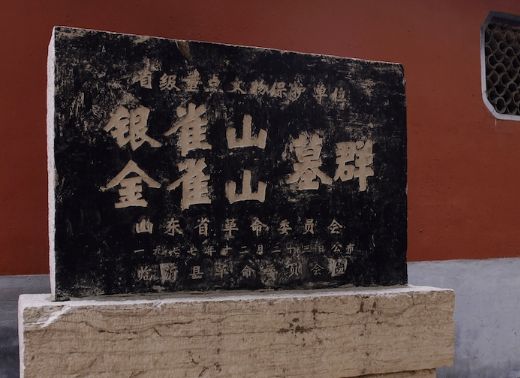 省级重点文物保护单位
银雀山
金雀山
墓群
山东省革命委员会
一九七七年十二月二十三日公布
临沂县革命委员会立